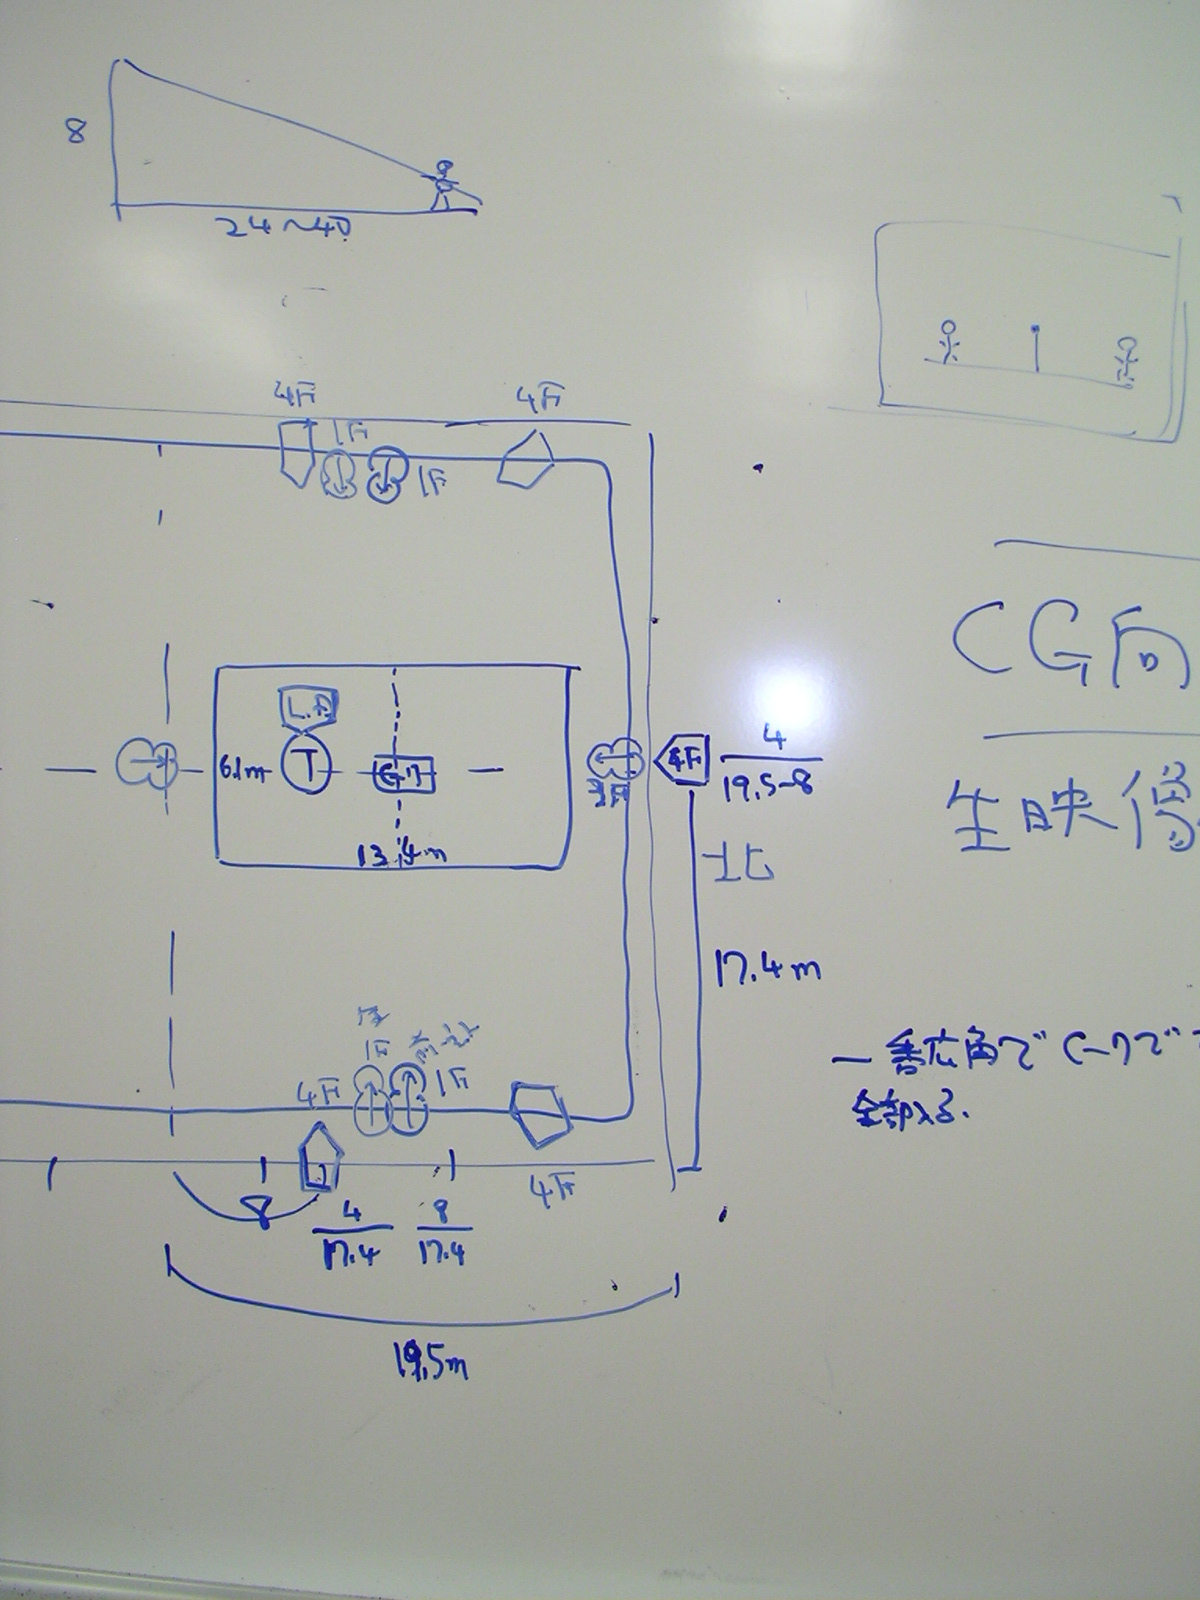 8
24~40
4F
4F
1F
1F
CG向
L.A
6.1m
T
4F
4
19.5-8
生映像
13.4m
北
17.4m
一番広角で
全部入る.
1F
4F
1F
4F
8
4
17.4
8
17.4
19.5m